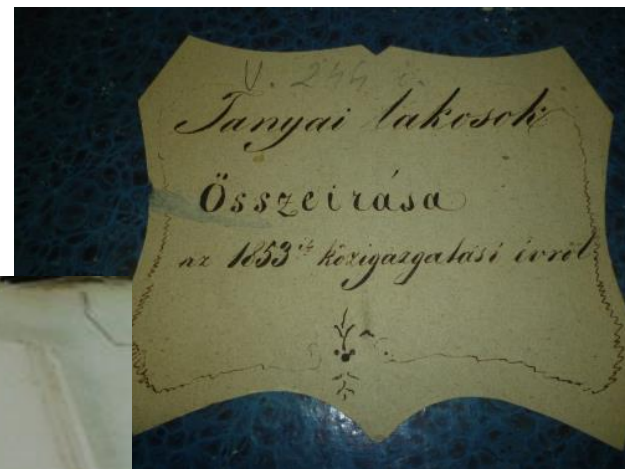 V. 244 c.
Tanyai lakosok
Összeirása
az 1853ik közigazgatási évről